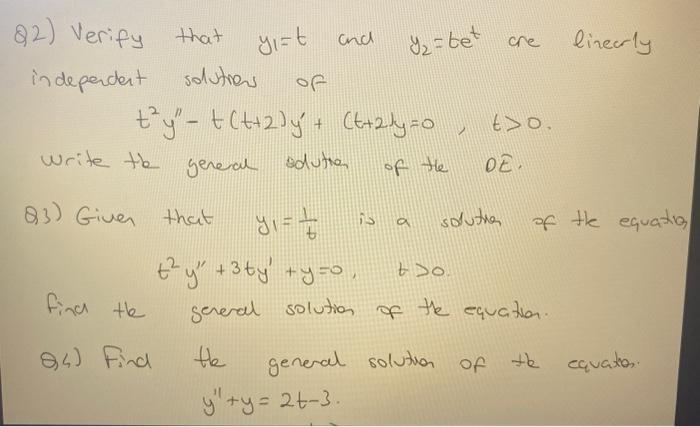 Q2) Verify that y₁=t and y₂=teᵗ are linearly
independent solutions of
t²y" - t(t+2)y' + (t+2)y=0, t>0.
write the general solution of the DE.
Q3) Given that y₁=1/t is a solution of the equation
t²y" +3ty' +y=0, t>0.
find the general solution of the equation.
Q4) Find the general solution of the equation.
y"+y= 2t-3.